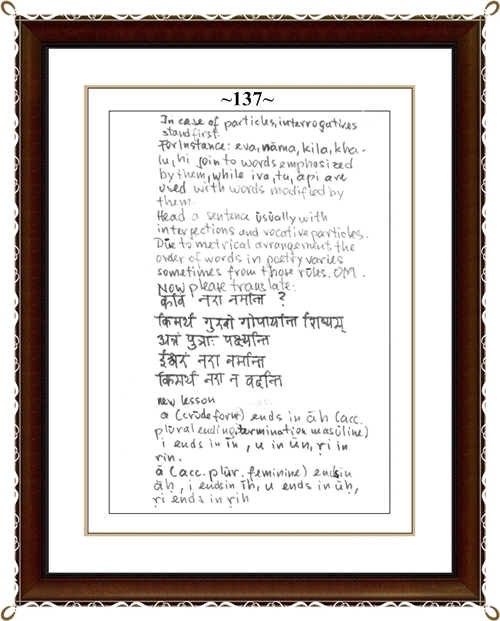 ~137~
In case of particles, interrogatives
stand first.
For Instance: eva, nāma, kila, kha-
lu, hi join to words emphosized
by them, while iva, tu, api are
used with words modified by
them.
Head a sentence usually with
interjections and vocative particles.
Due to metrical arrangement, the
order of words in poetry varies
sometimes from those rules. OM.
Now please translate:
कविं नरा नमन्ति ?
किमर्थं गुरवो गोपायन्ति शिष्यम्
अन्नं पुत्राः पक्ष्यन्ति
ईश्वरं नरा नमन्ति
किमर्थं नरा न वदन्ति
new lesson
a (crude form) ends in āh (acc.
plural ending, termination masculine)
i ends in īn, u in ūn, ṛi in
rīn.
ā (acc. plur. feminine) ends in
āḥ, i ends in īh, u ends in ūḥ,
ṛi ends in ṛīh